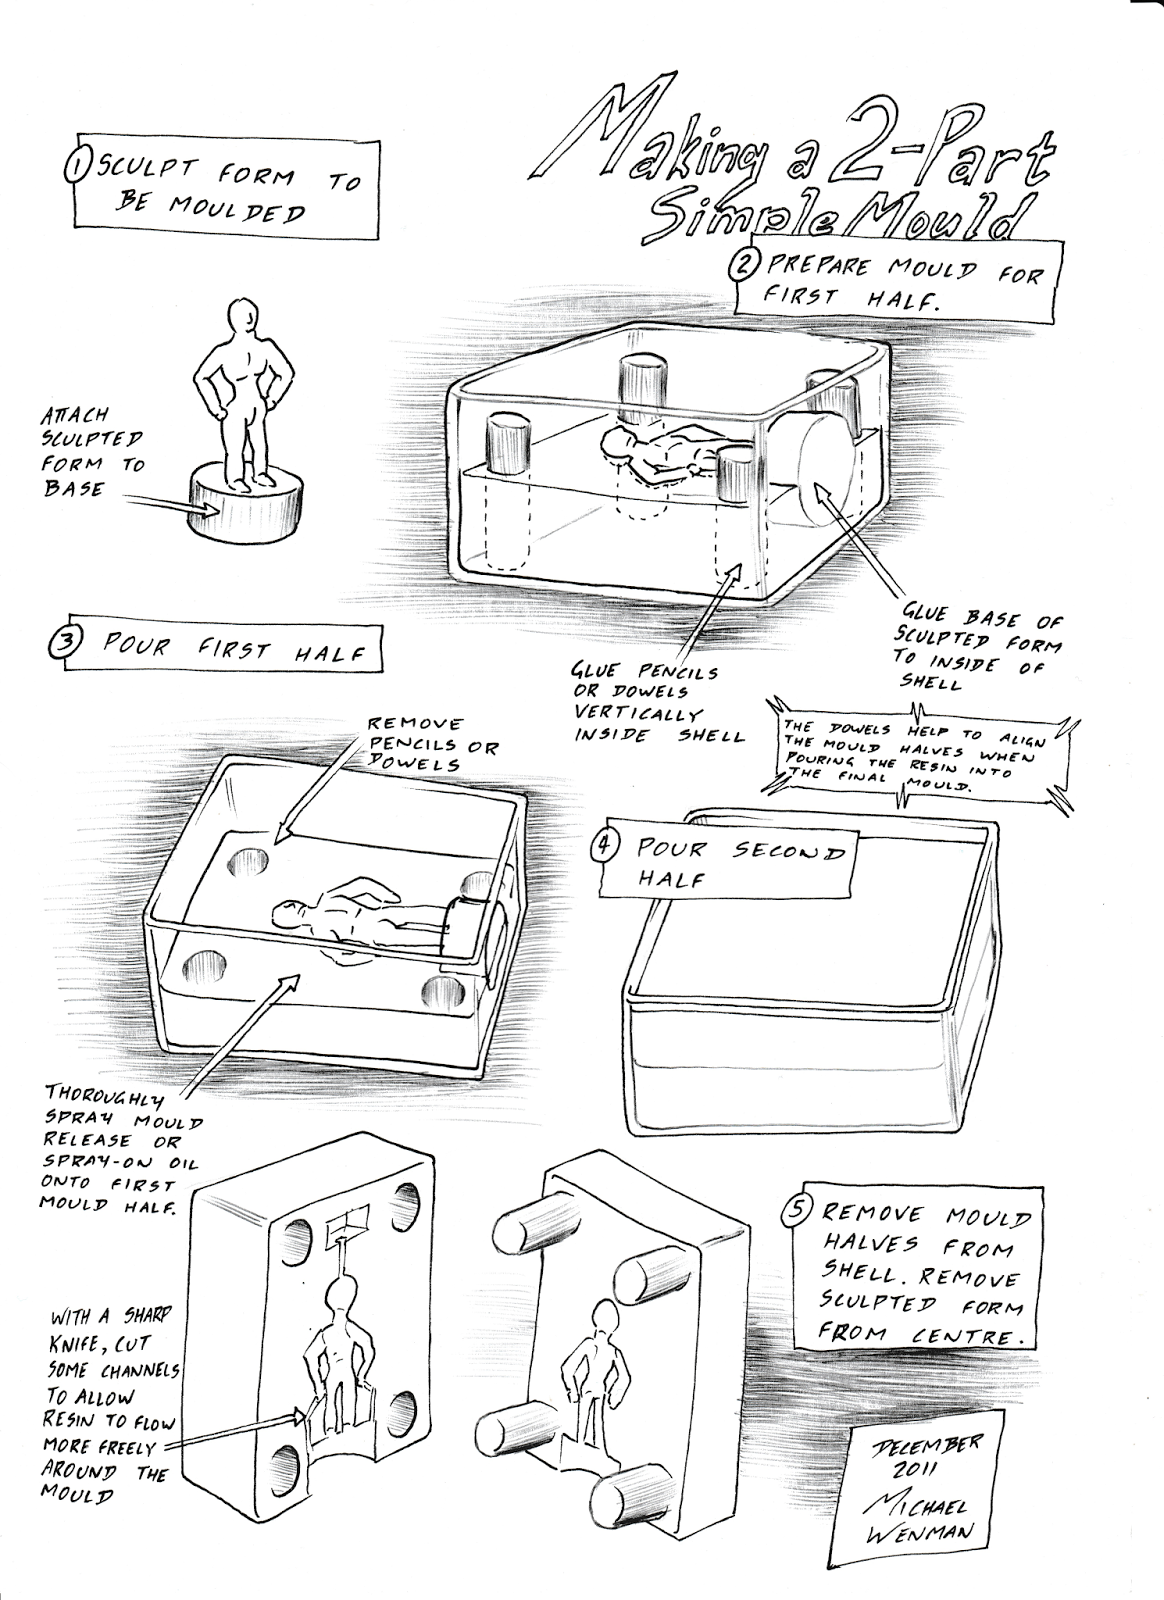 Making a 2-Part
Simple Mould
1 SCULPT FORM TO
BE MOULDED
ATTACH
SCULPTED
FORM TO
BASE
2 PREPARE MOULD FOR
FIRST HALF.
GLUE BASE OF
SCULPTED FORM
TO INSIDE OF
SHELL
GLUE PENCILS
OR DOWELS
VERTICALLY
INSIDE SHELL
THE DOWELS HELP TO ALIGN
THE MOULD HALVES WHEN
POURING THE RESIN INTO
THE FINAL MOULD.
3 POUR FIRST HALF
REMOVE
PENCILS OR
DOWELS
THOROUGHLY
SPRAY MOULD
RELEASE OR
SPRAY-ON OIL
ONTO FIRST
MOULD HALF.
4 POUR SECOND
HALF
5 REMOVE MOULD
HALVES FROM
SHELL. REMOVE
SCULPTED FORM
FROM CENTRE.
WITH A SHARP
KNIFE, CUT
SOME CHANNELS
TO ALLOW
RESIN TO FLOW
MORE FREELY
AROUND THE
MOULD
DECEMBER
2011
MICHAEL
WENMAN